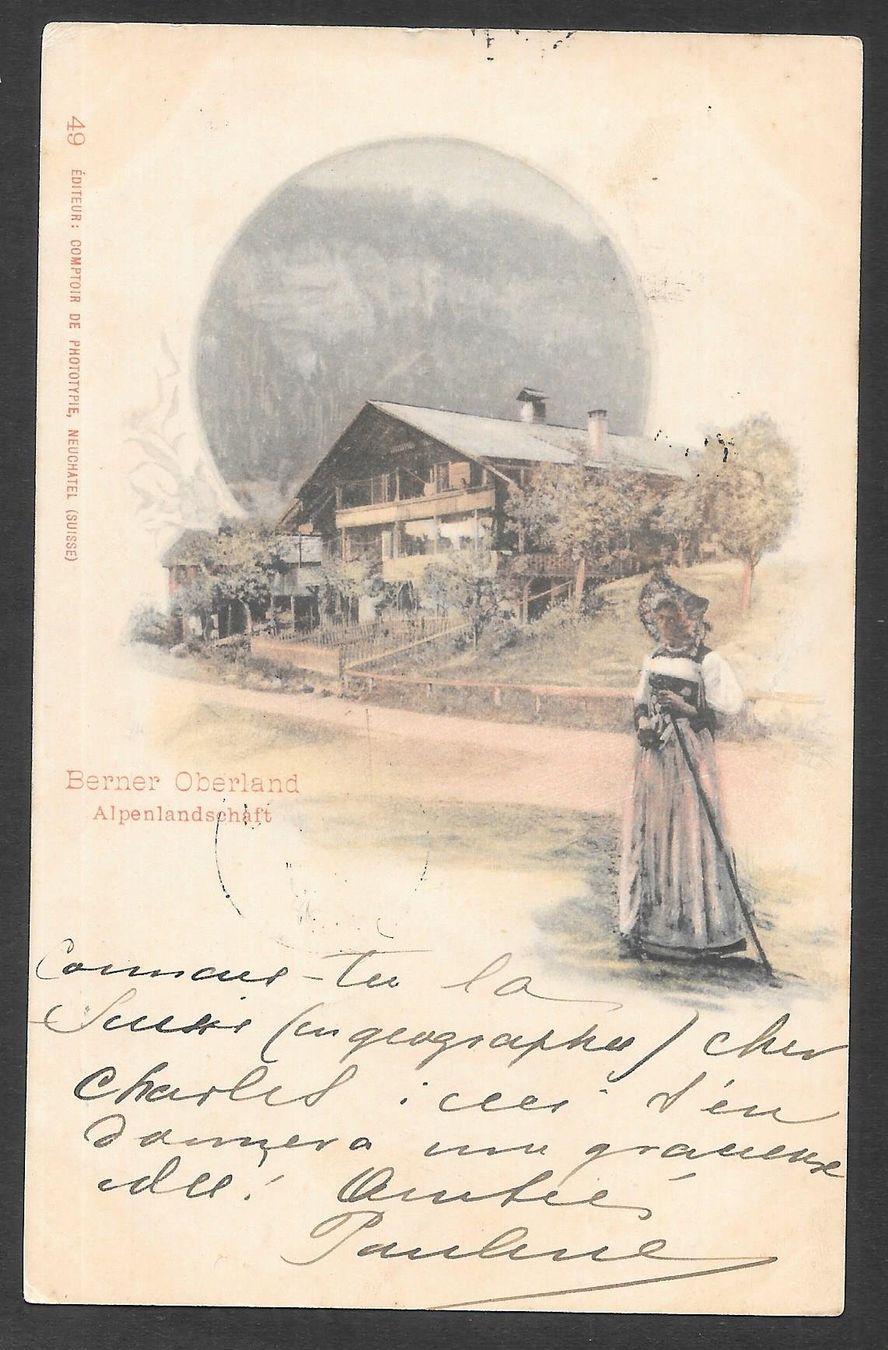 49 ÉDITEUR: COMPTOIR DE PHOTOTYPIE, NEUCHATEL (SUISSE)
Berner Oberland
Alpenlandschaft
Connais-tu la
Suisse (en géographie) cher
Charles : ceci t'en
donnera une gracieuse
idée! Amitiés
Pauline